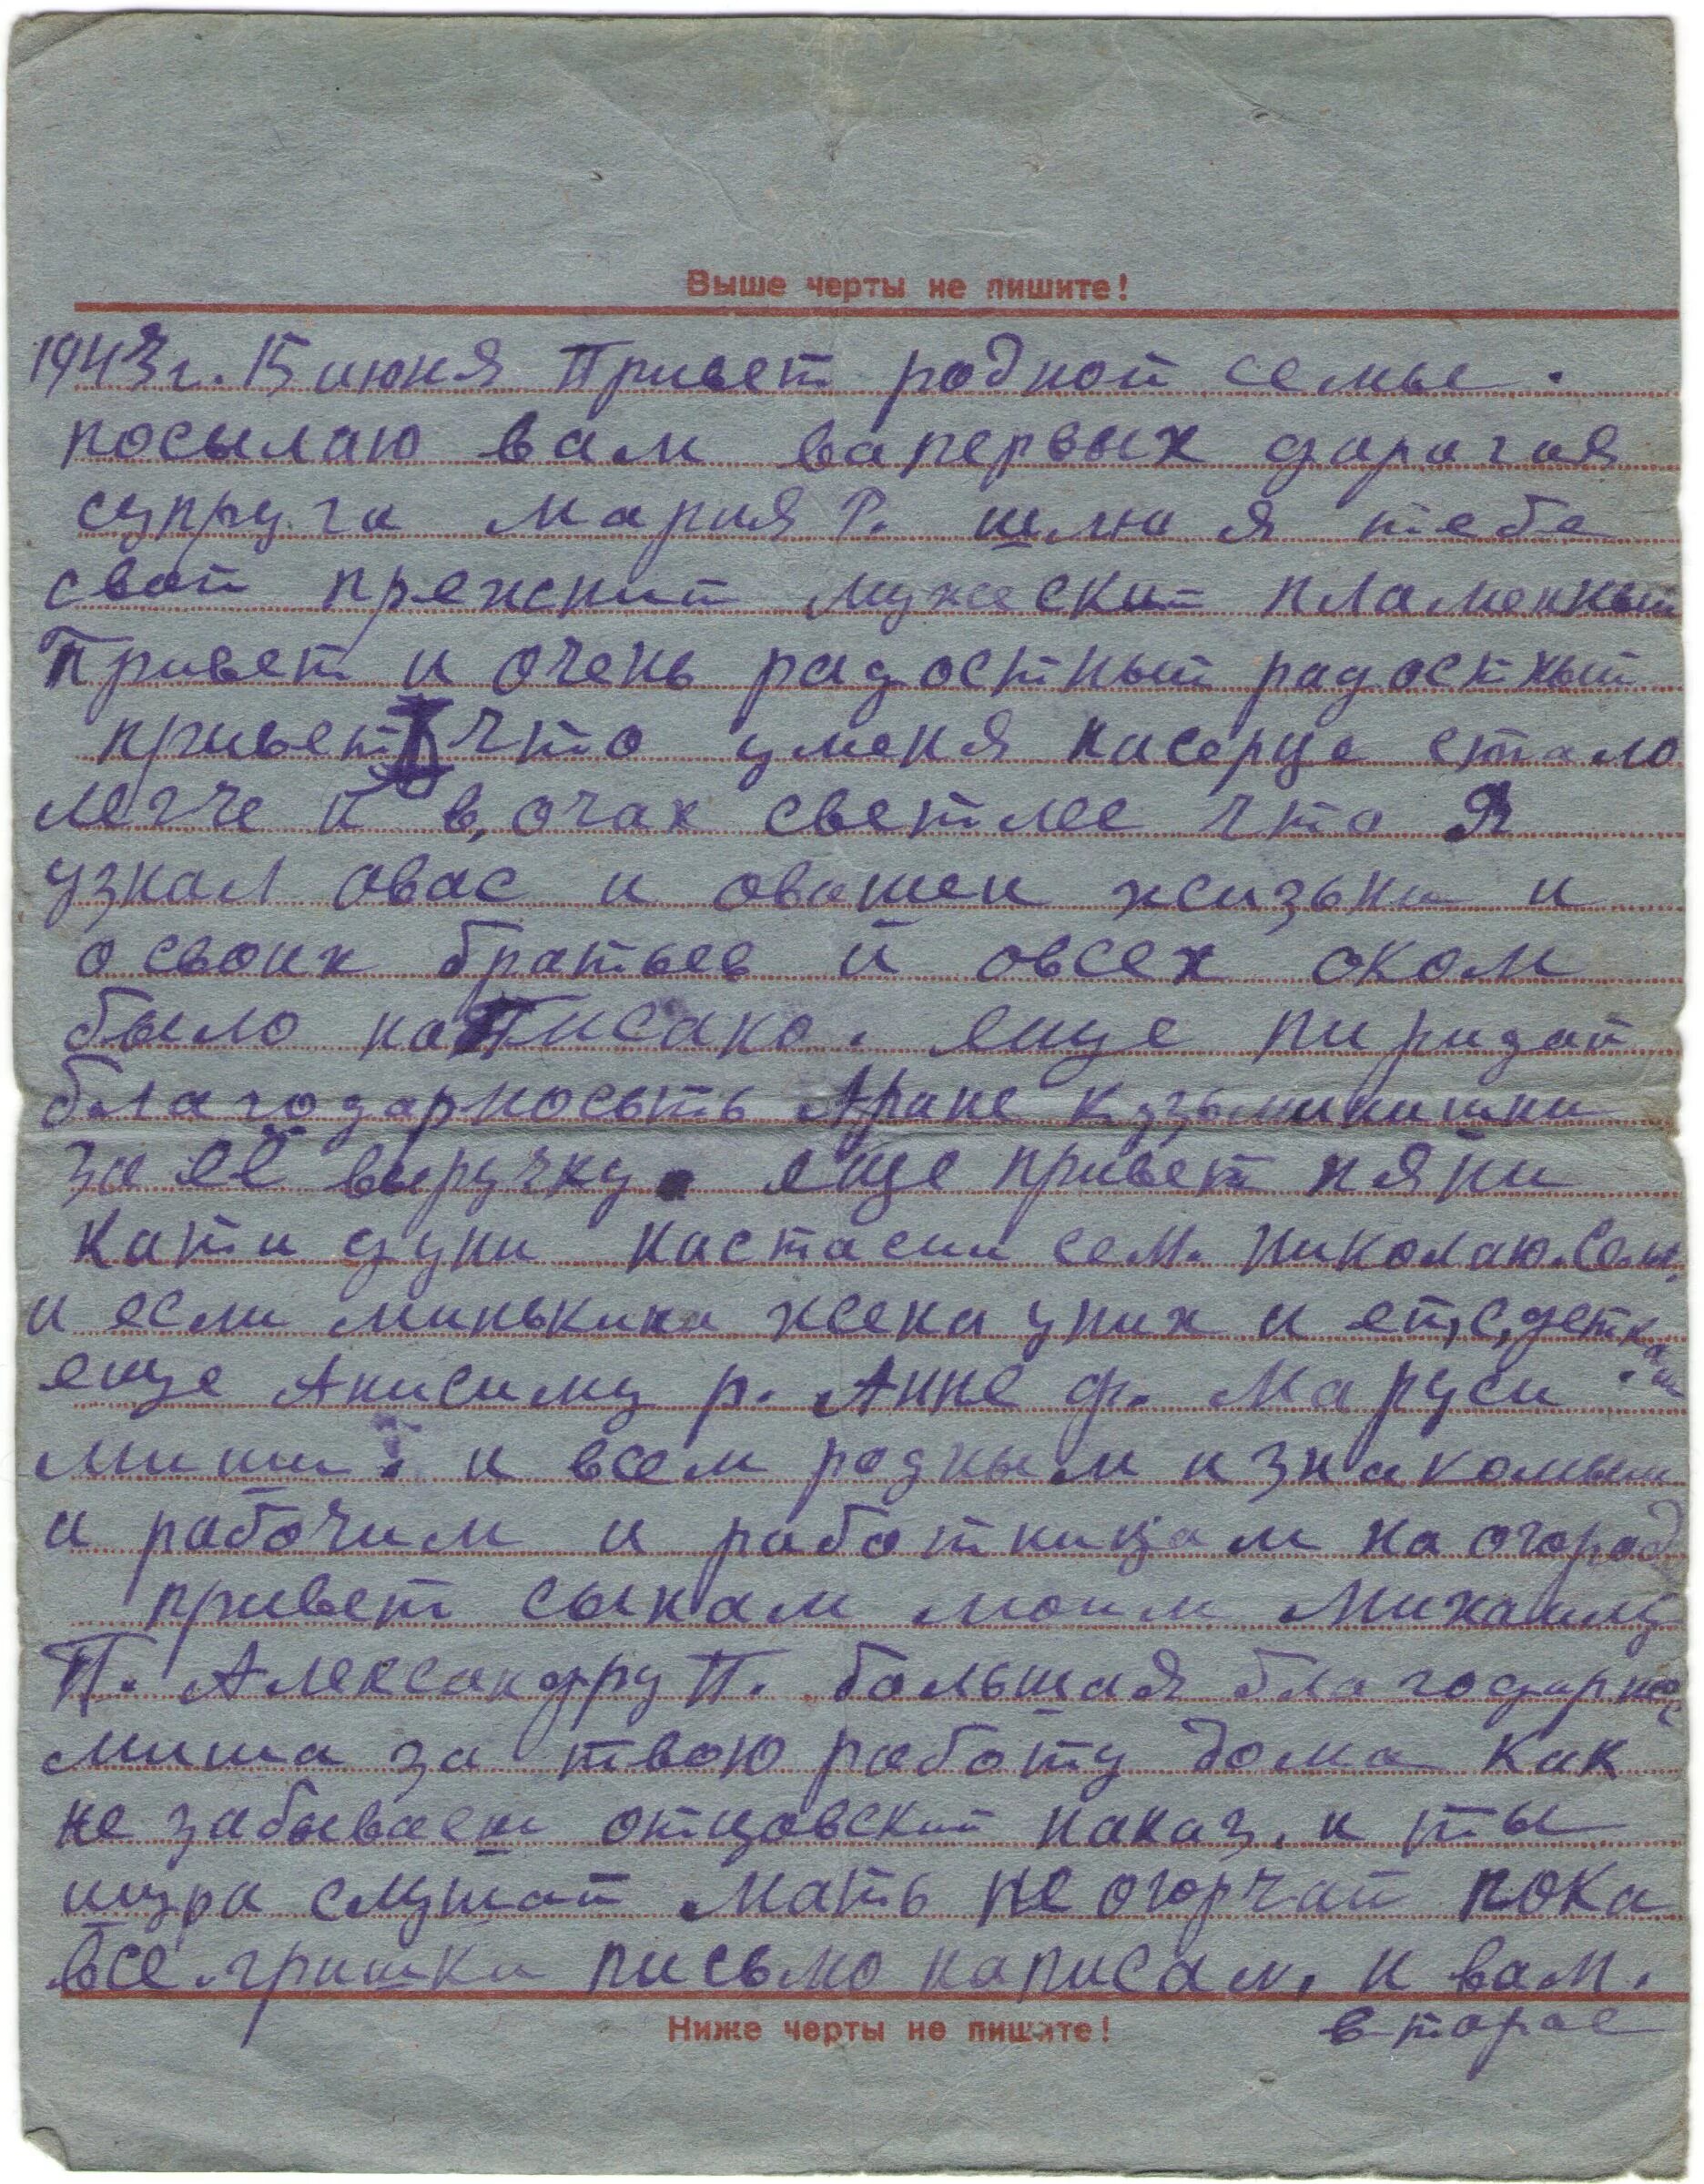 Выше черты не пишите!
1943 г. 15 июня Привет родной семье.
посылаю вам вапервых дарагая
супруга мария Р. шлю я тебе
свой прежний мужеский пламенный
Привет и очень радостный радостный
привет что уменя насерце стало
легче и в, очах светлее что Я
узнал овас и овашей жизьни и
о своих братьев и овсех оком
было написано. еще пиридай
благодарносьть Арине кузьминишни
за её выручку. еще привет няни
Кати дуни настасии сем. николаю. Сем.
и если минькина жена уних и ей, с, детками
еще Анисиму р. Анне ф. Маруси
миши. и всем родным изнакомым
и рабочим и работницам на огород
привет сынам моим Михаилу
П. Александру П. большая благодарнос
миша за твою работу дома как
не забываеш отцовский наказ. и ты
шура слушай мать не огорчай пока
все. гришки письмо написал, и вам.
второе
Ниже черты не пишите!